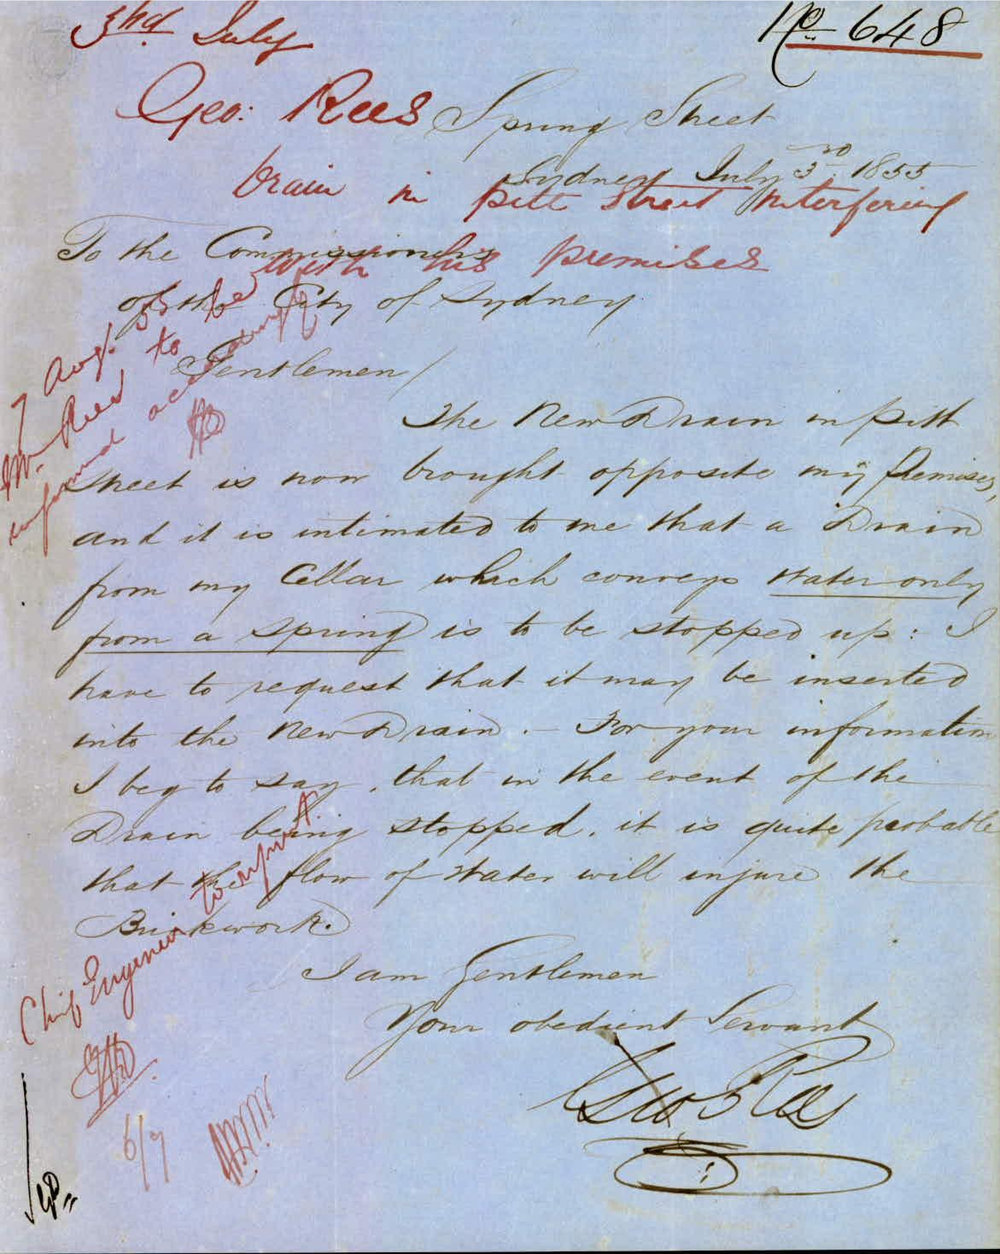 3rd July
No 648
Geo: Rees
Drain in Pitt Street interfering
with his premises
Spring Street
Sydney July 3rd 1855
To the Commissioners
of the City of Sydney
Gentlemen/
The New Drain in Pitt
Street is now brought opposite my Premises,
and it is intimated to me that a Drain
from my Cellar which conveys water only
from a spring is to be stopped up: I
have to request that it may be inserted
into the New Drain. – For your information
I beg to say, that in the event of the
Drain being stopped, it is quite probable
that the flow of water will injure the
Brickwork.
I am Gentlemen
Your obedient Servant
Geo Rees
7 Aug. 55
Mr. Rees to be
informed accordingly
Chief Engineer to report
6/7